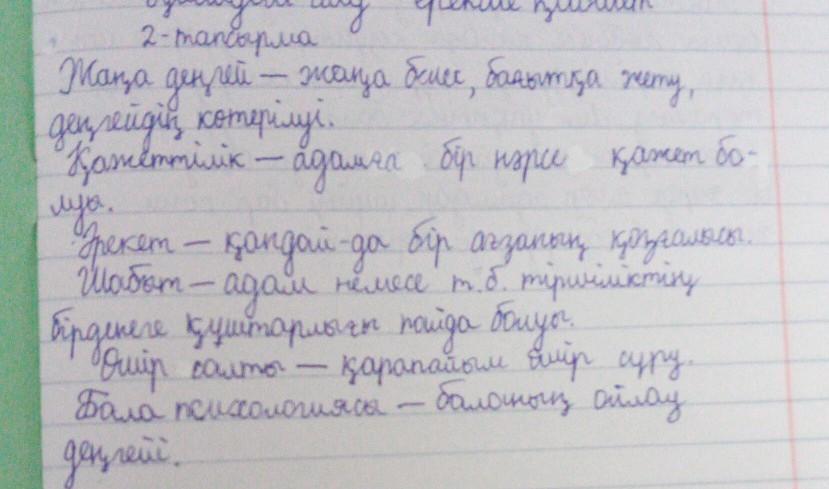 ерекше
2-тапсырма
Жаңа деңгей — жаңа белес, бағытқа жету,
деңгейдің көтерілуі.
Қажеттілік — адамға бір нәрсе қажет бо-
луы.
Әрекет — қандай-да бір ағзаның қозғалысы.
Шабыт — адам немесе т.б. тіршіліктің
бірденеге құштарлығы пайда болуы.
Өмір салты — қарапайым өмір сүру.
Бала психологиясы — баланың ойлау
деңгейі.